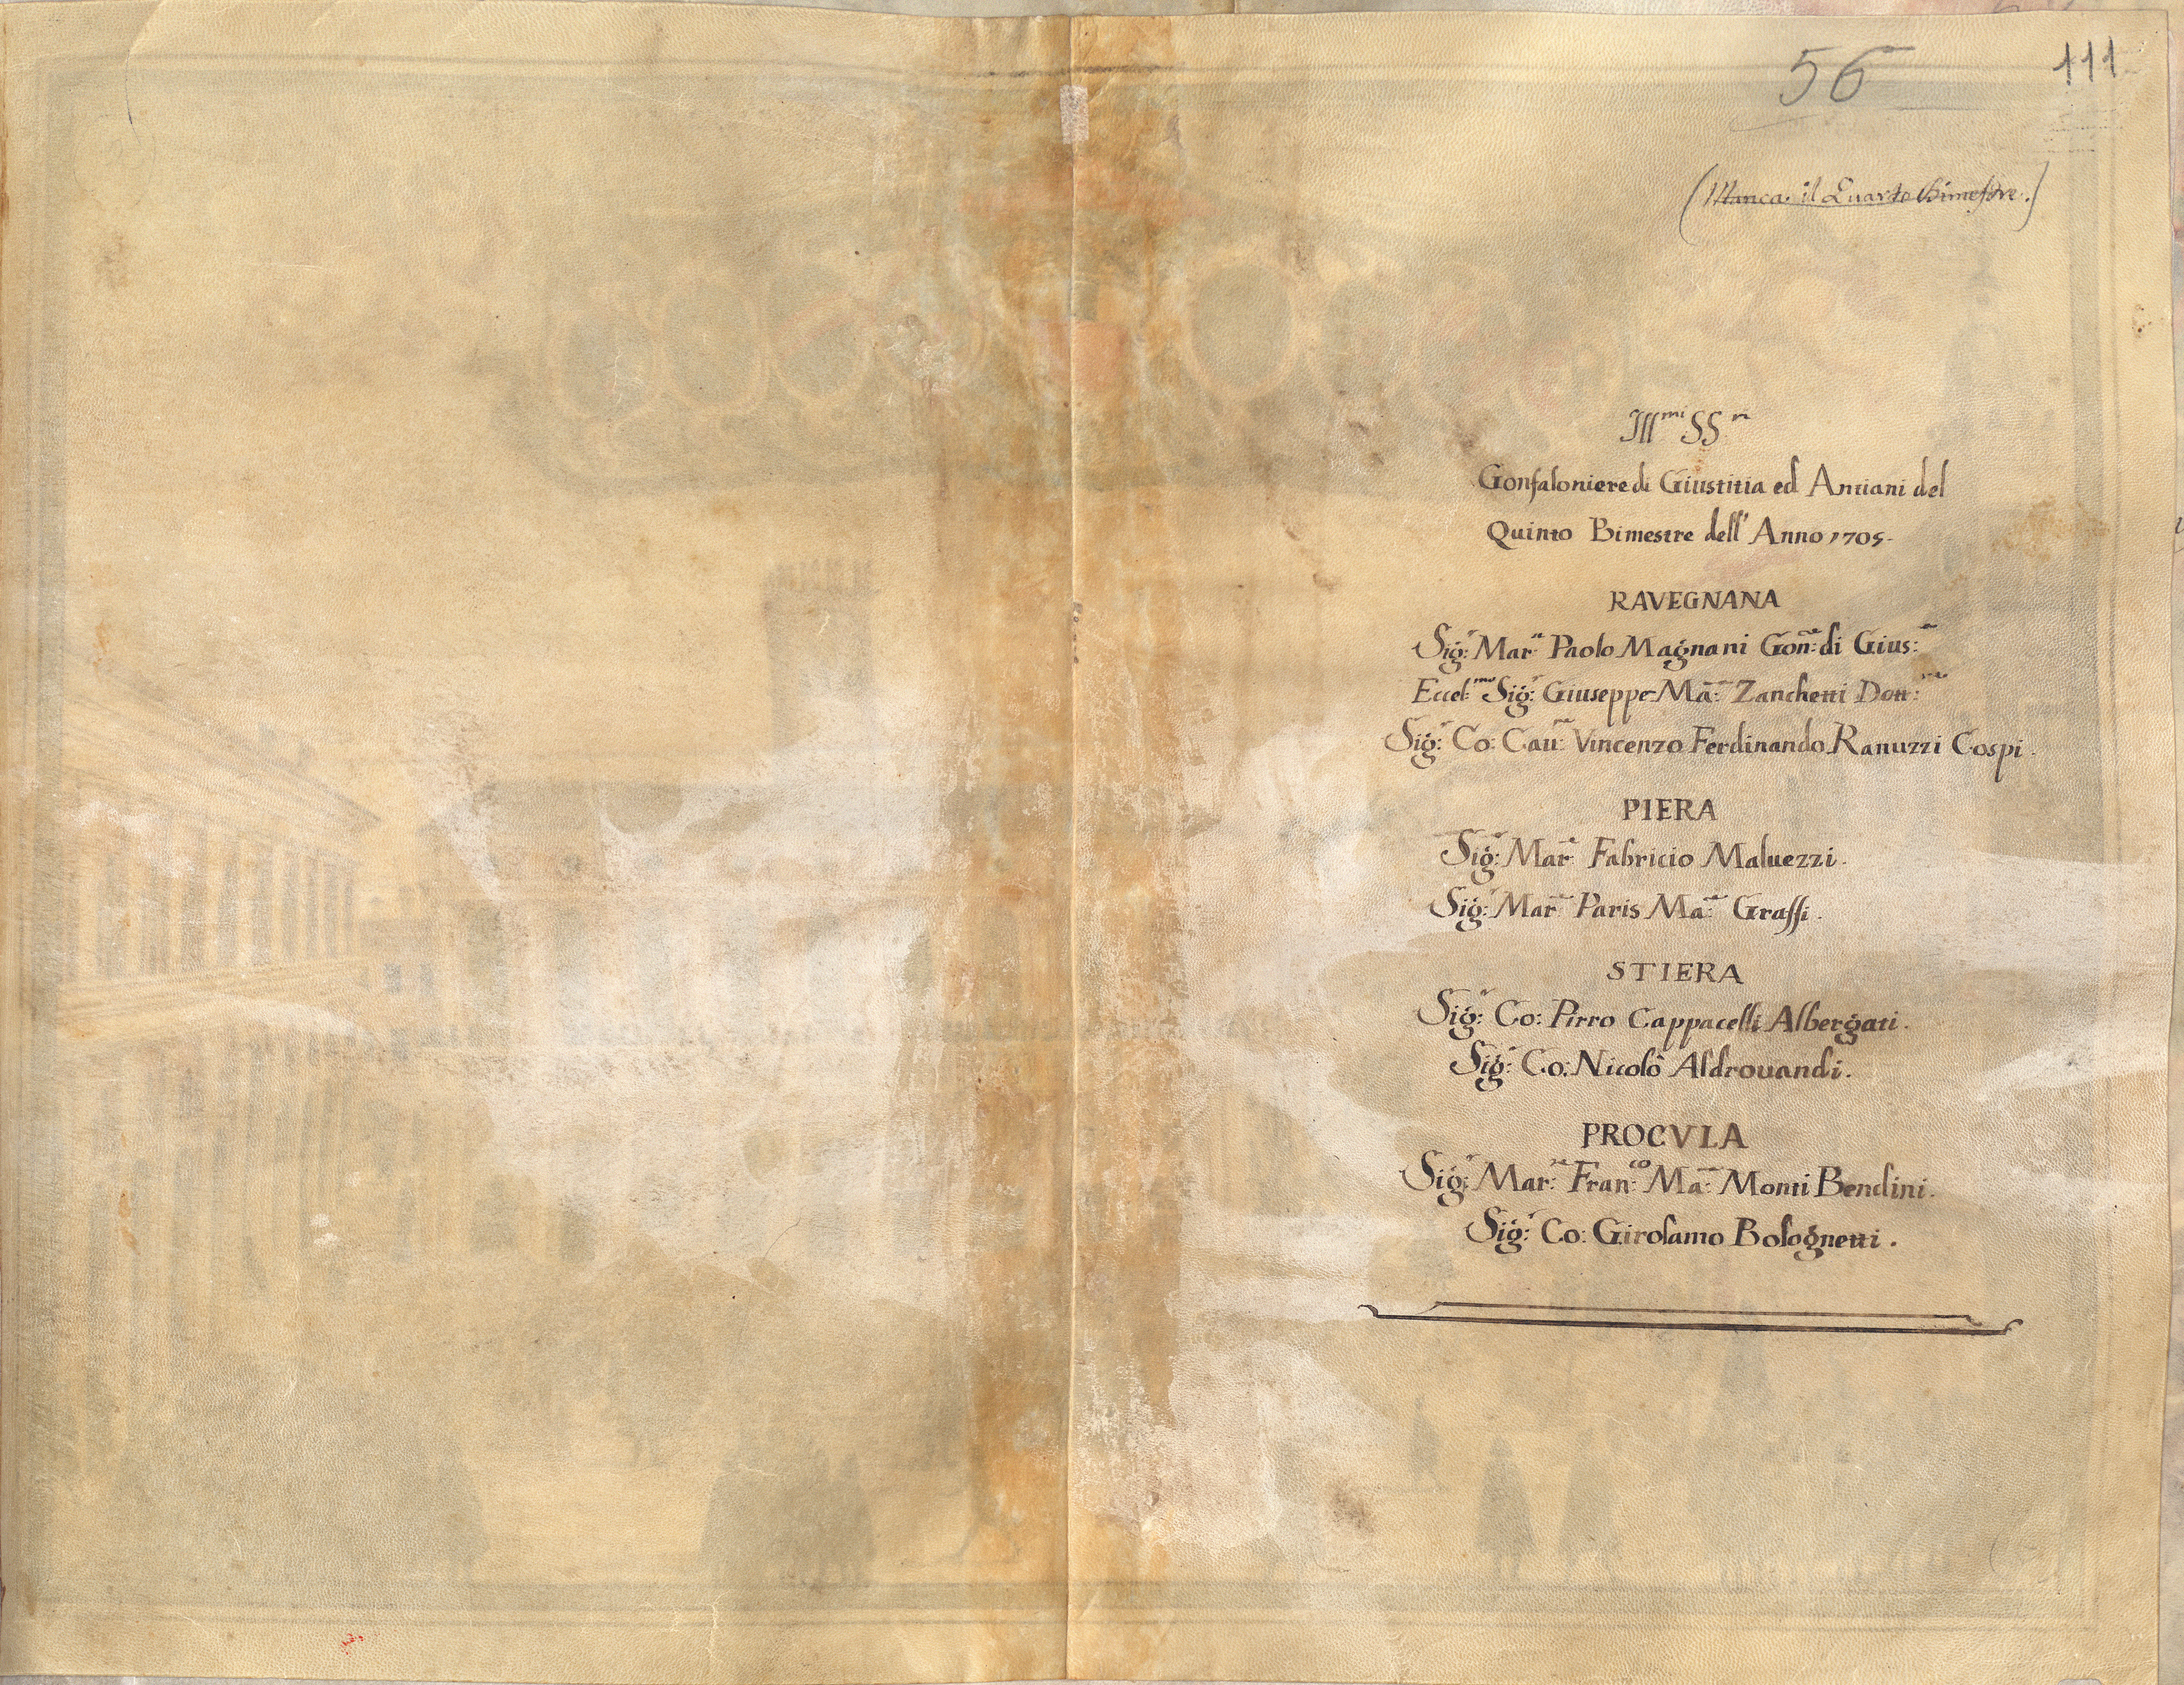 56
111
(Manca il Quarto Bimestre.)
Ill.mi SS.ri
Gonfaloniere di Giustitia ed Antiani del
Quinto Bimestre dell' Anno 1705.
RAVEGNANA
Sig:r Mar:e Paolo Magnani Gon:re di Gius:a
Eccel:mo Sig:r Giuseppe Ma:a Zanchetti Dott:re
Sig:r Co: Cau:re Vincenzo Ferdinando Ranuzzi Cospi.
PIERA
Sig:r Mar:e Fabricio Maluezzi.
Sig:r Mar:e Paris Ma:a Grassi.
STIERA
Sig:r Co: Pirro Cappacelli Albergati.
Sig:r Co: Nicolò Aldrouandi.
PROCVLA
Sig:r Mar:e Fran:co Ma:a Monti Bendini.
Sig:r Co: Girolamo Bolognetti.